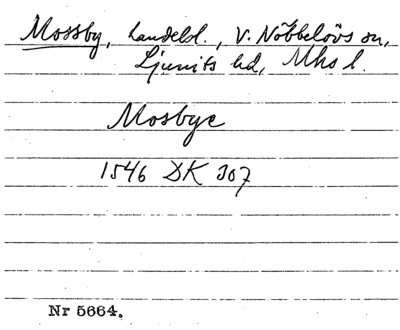 Mossby, landebl., V. Nöbbelövs sn,
Ljunits hd, Mhs l.
Mosbye
1546 DK 307
Nr 5664.